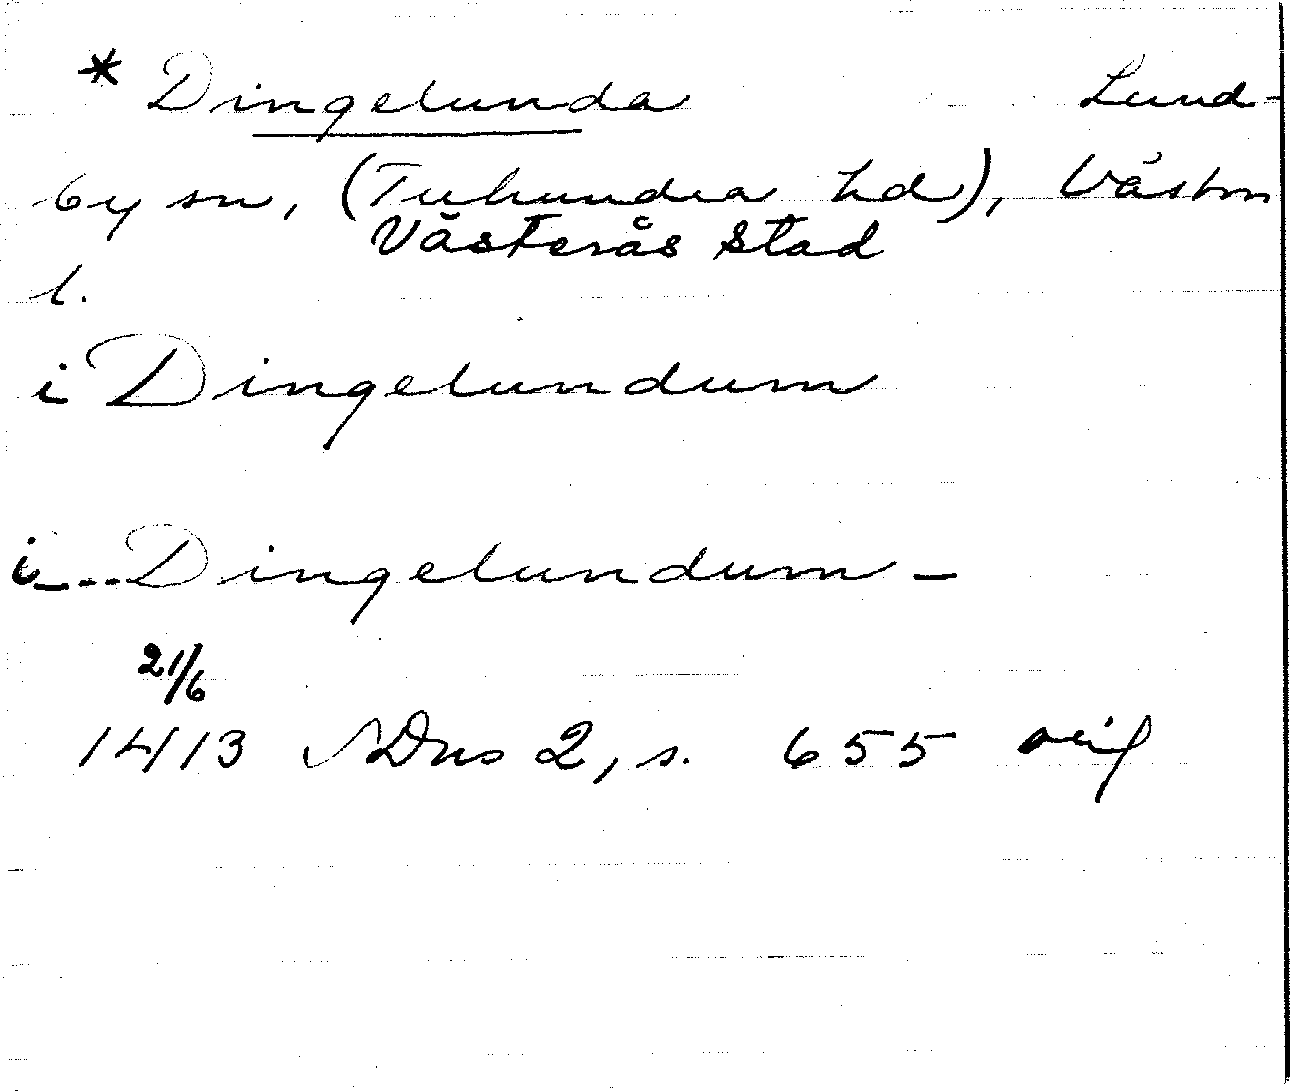 * Dingelunda Lund-
by sn, (Tuhundra hd), Västm
Västerås stad
l.
i Dingelundum
i--Dingelundum -
21/6
1413 SDns 2, s. 655 orig